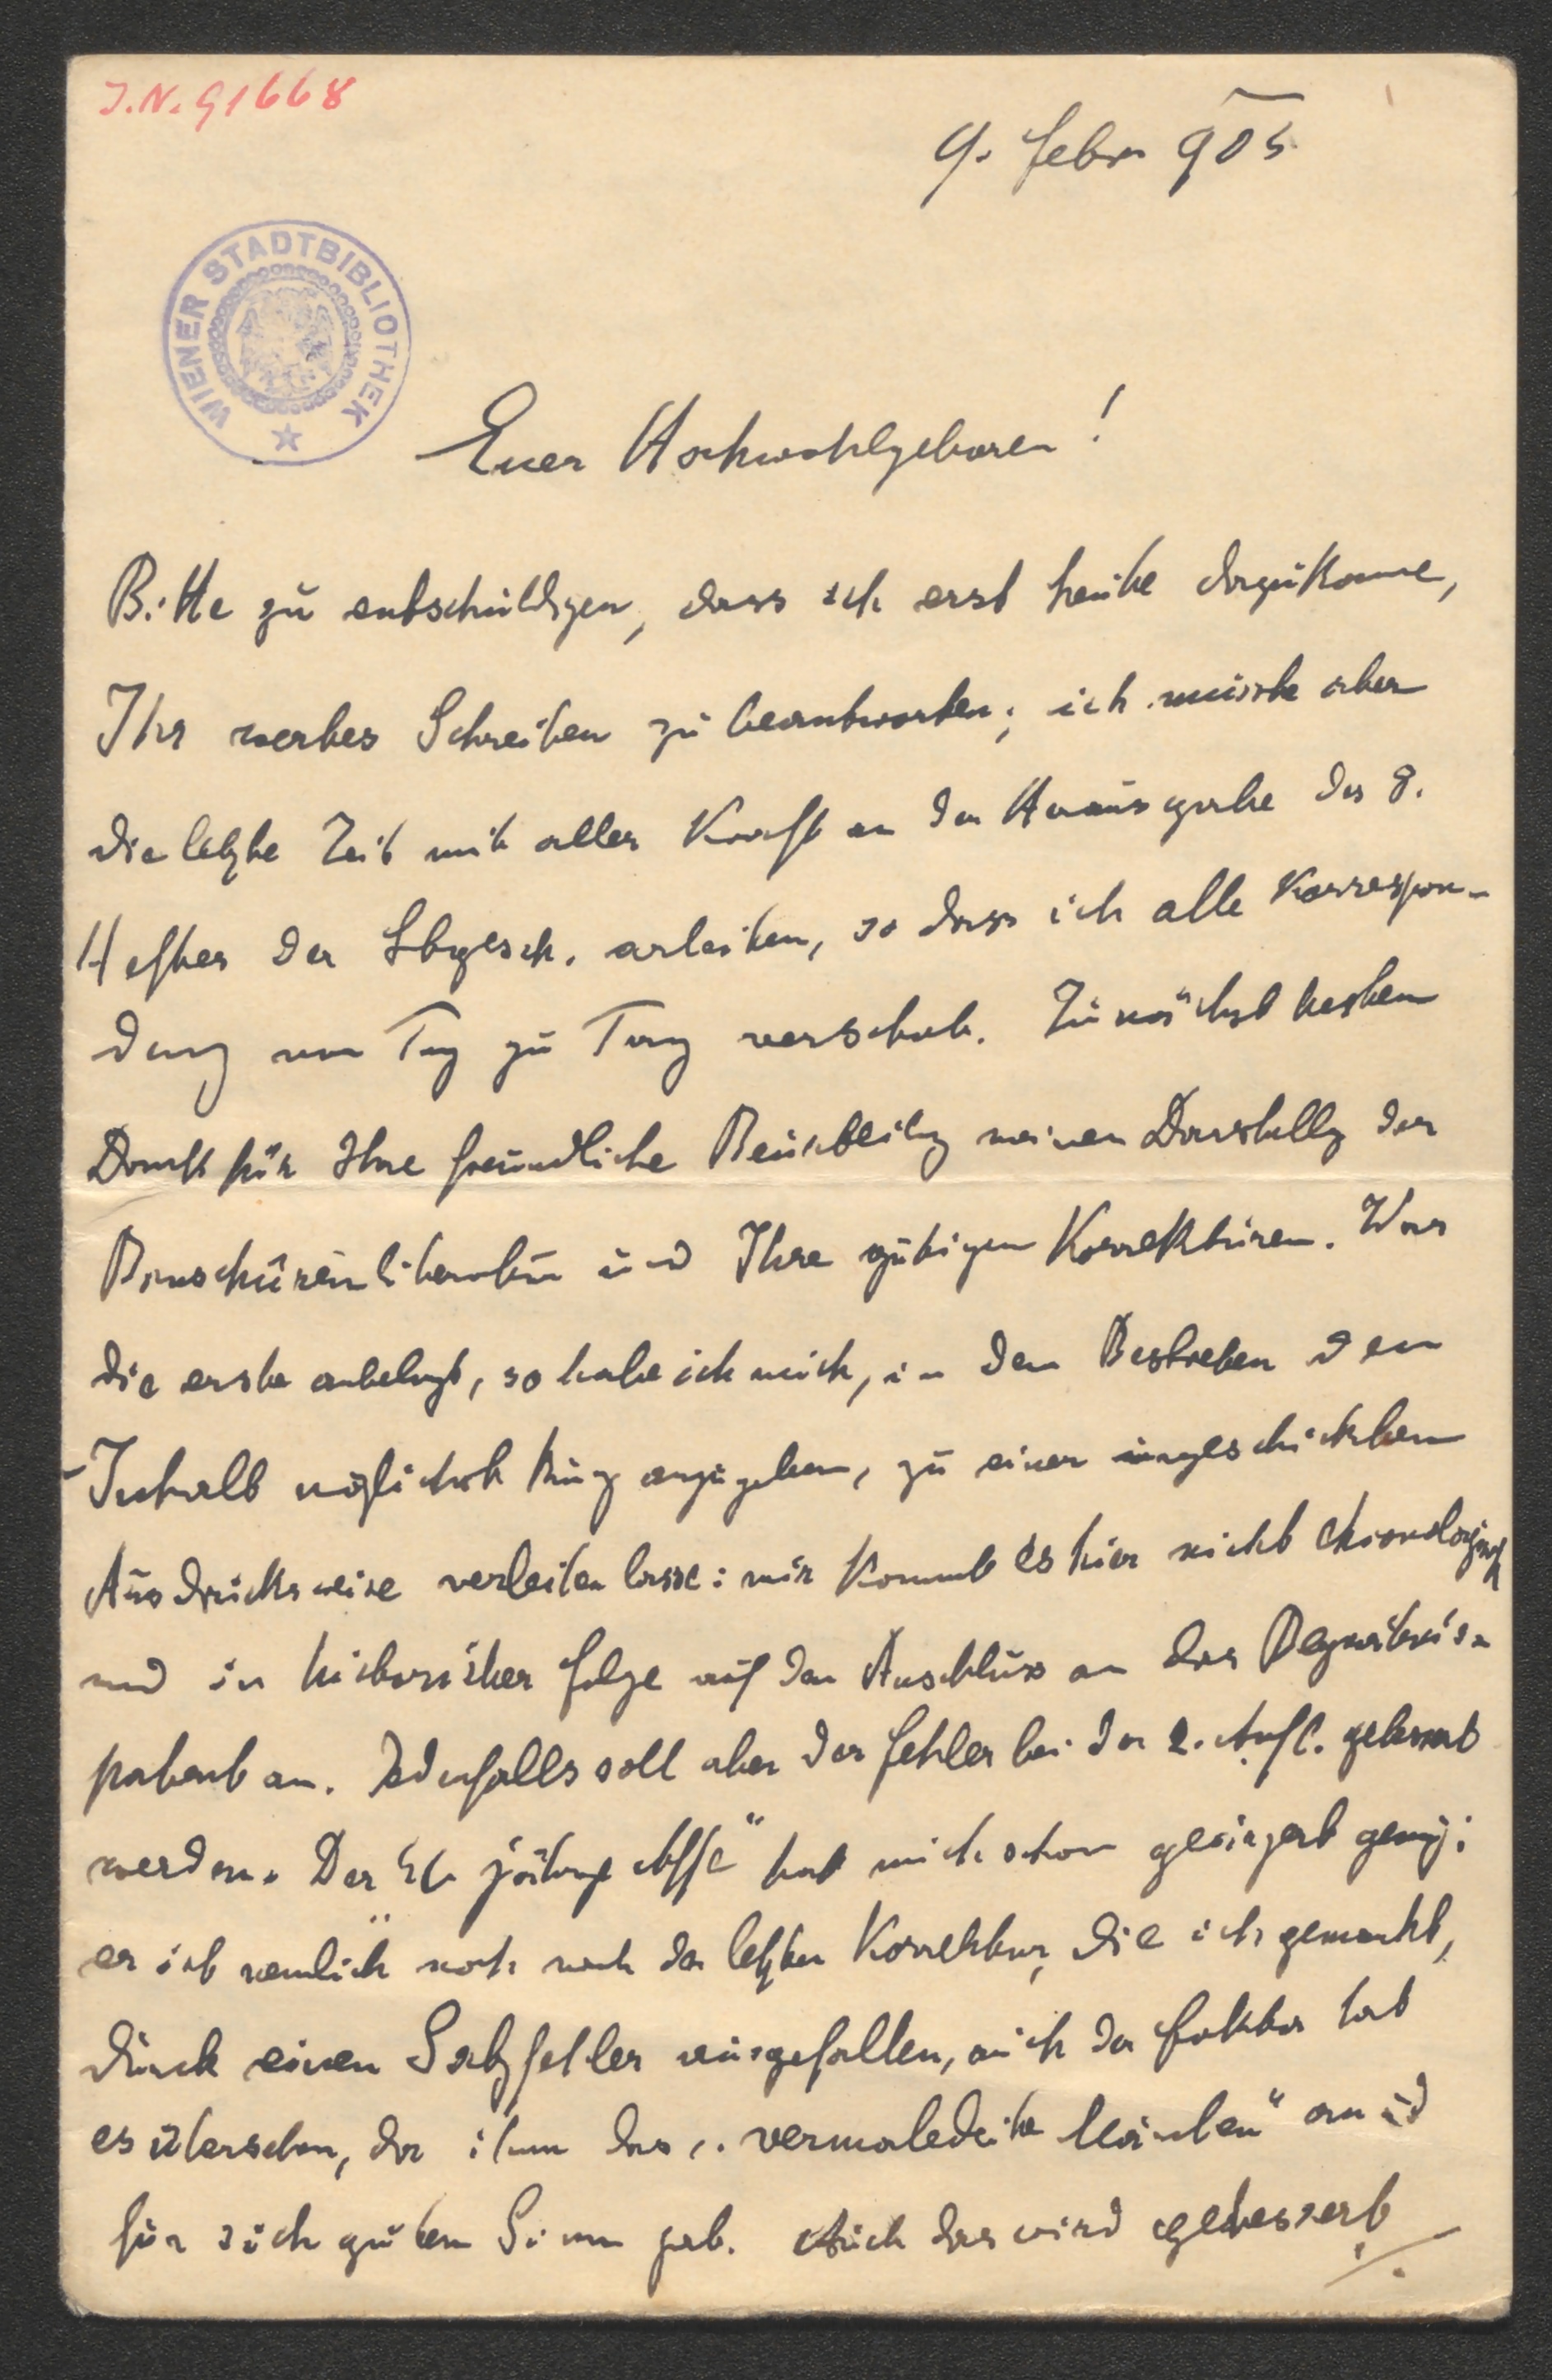 J.N. 91668
9. Febr 905
WIENER STADTBIBLIOTHEK
Euer Hochwohlgeboren!
Bitte zu entschuldigen, dass ich erst heute dazukomme,
Ihr wertes Schreiben zu beantworten; ich musste aber
die letzte Zeit mit aller Kraft an der Herausgabe des 8.
Heftes der Ltgesch. arbeiten, so dass ich alle Korrespon-
denz von Tag zu Tag verschob. Zunächst besten
Dank für Ihre freundliche Beurteilg meiner Darstellg der
Broschürenliteratur und Ihre gütigen Korrekturen. Was
die erste anbelangt, so habe ich mich, in dem Bestreben den
Inhalt möglichst kurz anzugeben, zu einer ungeschickten
Ausdrucksweise verleiten lasse: mir kommt es hier nicht chronologisch
und in historischer Folge auf den Anschluss an das
patent an. Jedenfalls soll aber der Fehler bei der 2. Aufl. gebessert
werden. Der Affe" hat mich schon geärgert genug;
er ist nämlich noch nach der letzten Korrektur, die ich gemacht,
durch einen Satzfehler ausgefallen, auch der Faktor hat
es übersehen, da ihm das „vermaledeite läuten" an und
für sich guten Sinn gab. Auch das wird gebessert
./.